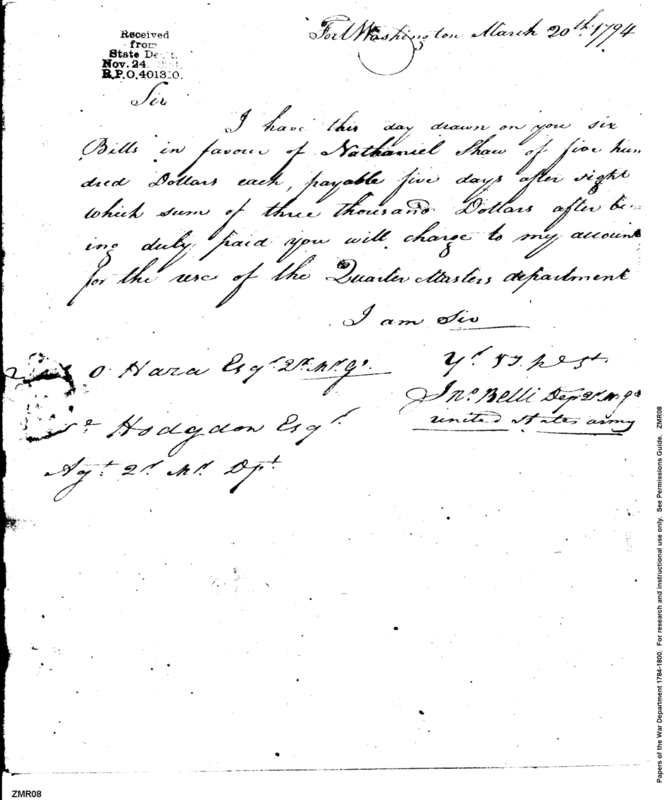 Received
from
State De
Nov. 24
R.P.O. 401310.
Fort Washington March 20th 1794
Sir
I have this day drawn on you six
Bills in favour of Nathaniel Shaw of five hun
dred Dollars each, payable five days after sight
which sum of three thousand Dollars after be-
ing duly paid you will charge to my account
for the use of the Quarter Masters department
I am Sir
O Hara Esqr Qr. Mr. Gl.
Jno. Belli Dep Qr M Gl
united States army
Hodgdon Esqr.
Agt. Qr. Mr. Dpt.
ZMR08
Papers of the War Department 1784-1800. For research and instructional use only. See Permissions Guide. ZMR08